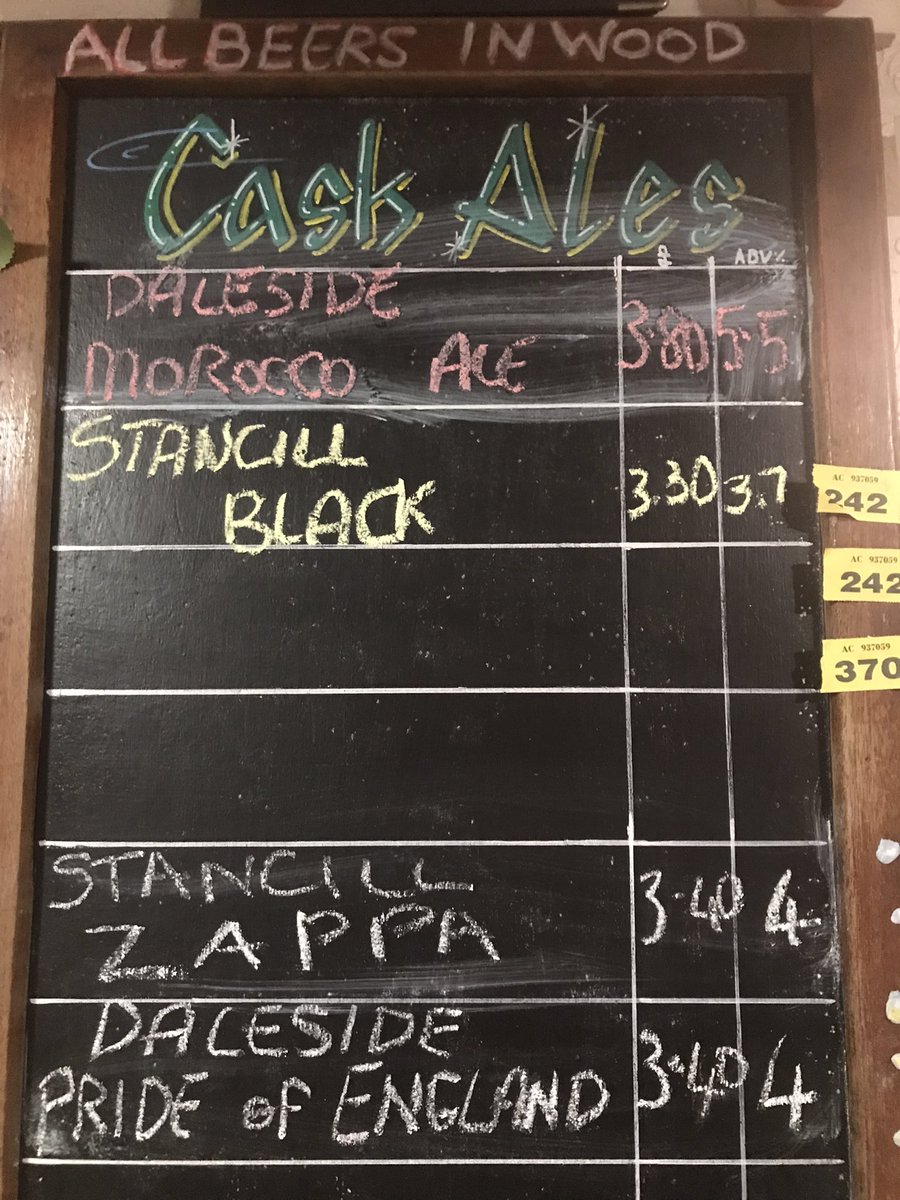 ALL BEERS IN WOOD
Cask Ales
£ ABV%
DALESIDE
MOROCCO ALE 3.80 5.5
STANCILL
BLACK 3.30 3.7
AC 937059
242
AC 937059
242
AC 937059
370
STANCILL
ZAPPA 3.40 4
DALESIDE
PRIDE OF ENGLAND 3.40 4